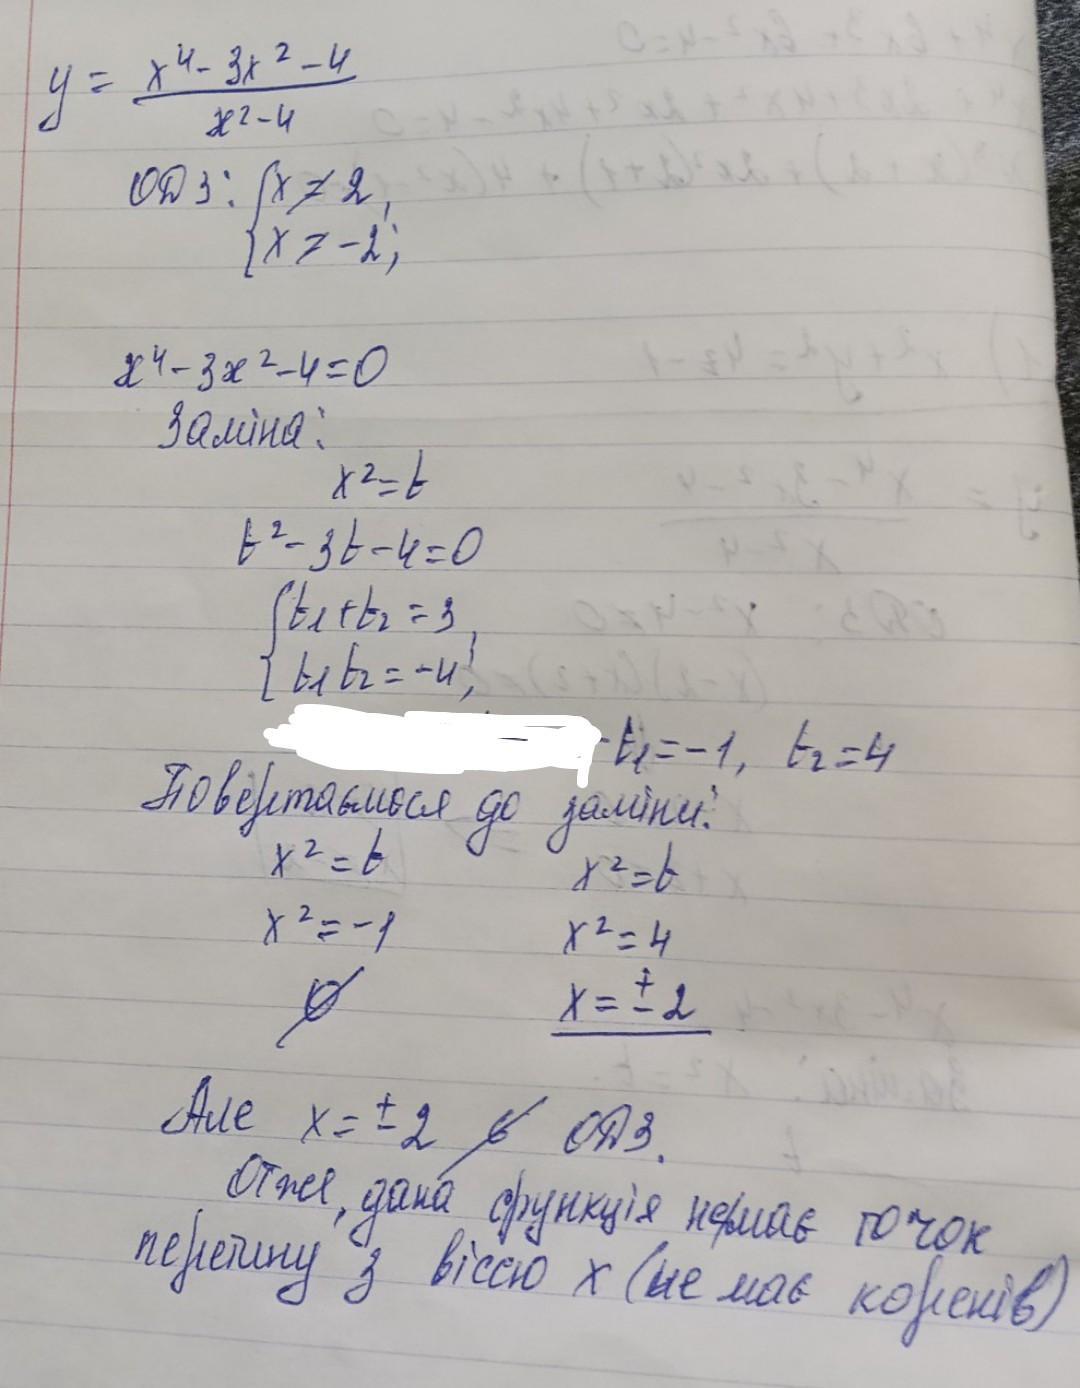 y = (x⁴ - 3x² - 4)/(x² - 4)
ОДЗ: {x ≠ 2,
{x ≠ -2;
x⁴ - 3x² - 4 = 0
Заміна:
x² = t
t² - 3t - 4 = 0
{t₁ + t₂ = 3,
{t₁ t₂ = -4;
t₁ = -1, t₂ = 4
Повертаємося до заміни:
x² = t x² = t
x² = -1 x² = 4
∅ x = ±2
Але x = ±2 ∉ ОДЗ.
Отже, дана функція немає точок
перетину з віссю x (не має коренів)